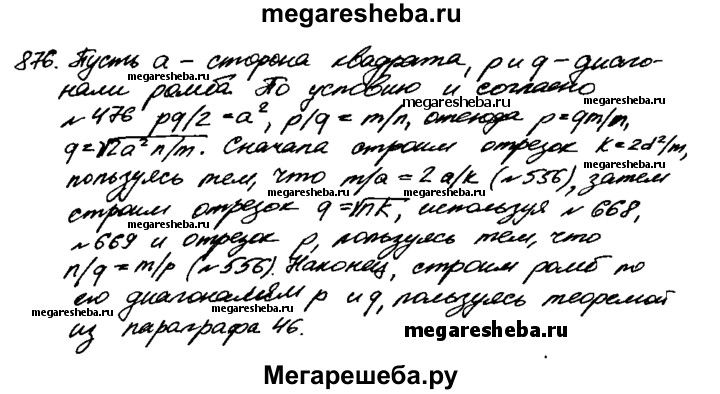 megaresheba.ru
876. Пусть a – сторона квадрата, p и q – диаго-
megaresheba.ru megaresheba.ru
нали ромба. По условию и согласно
megaresheba.ru
№ 476 pq/2 = a², p/q = m/n, откуда p = qm/n,
megaresheba.ru
q = √2a²n/m. Сначала строим отрезок k = 2d²/m,
megaresheba.ru
пользуясь тем, что m/a = 2a/k (№ 556), затем
megaresheba.ru
строим отрезок q = √nk, используя № 668,
megaresheba.ru
№ 669 и отрезок p, пользуясь тем, что
megaresheba.ru
n/q = m/p (№ 556). Наконец, строим ромб по
megaresheba.ru
его диагоналям p и q, пользуясь теоремой
megaresheba.ru
из параграфа 46.
megaresheba.ru
Мегарешеба.ру